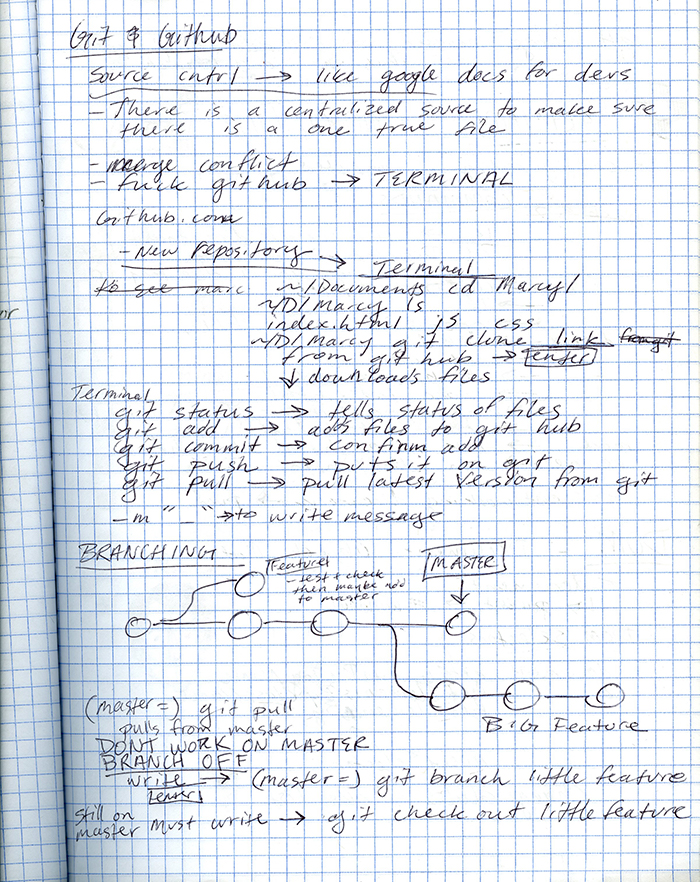 Git & Github
Source cntrl → like google docs for devs
- There is a centralized source to make sure
there is a one true file
- merge conflict
- fuck github → TERMINAL
Github.com
- New repository → Terminal
to see marc ~/Documents cd Marcy/
~/D/Marcy ls
index.html js css
~/D/Marcy git clone link from git
from git hub → enter
↓ downloads files
Terminal
git status → tells status of files
git add → adds files to git hub
git commit → confirm add
git push → puts it on git
git pull → pull latest version from git
-m "_" → to write message
BRANCHING
Feature
- test & check
then maybe add
to master
MASTER
BIG Feature
(master=) git pull
pulls from master
DONT WORK ON MASTER
BRANCH OFF
write → (master=) git branch little feature
enter
still on
master must write → git check out little feature
or